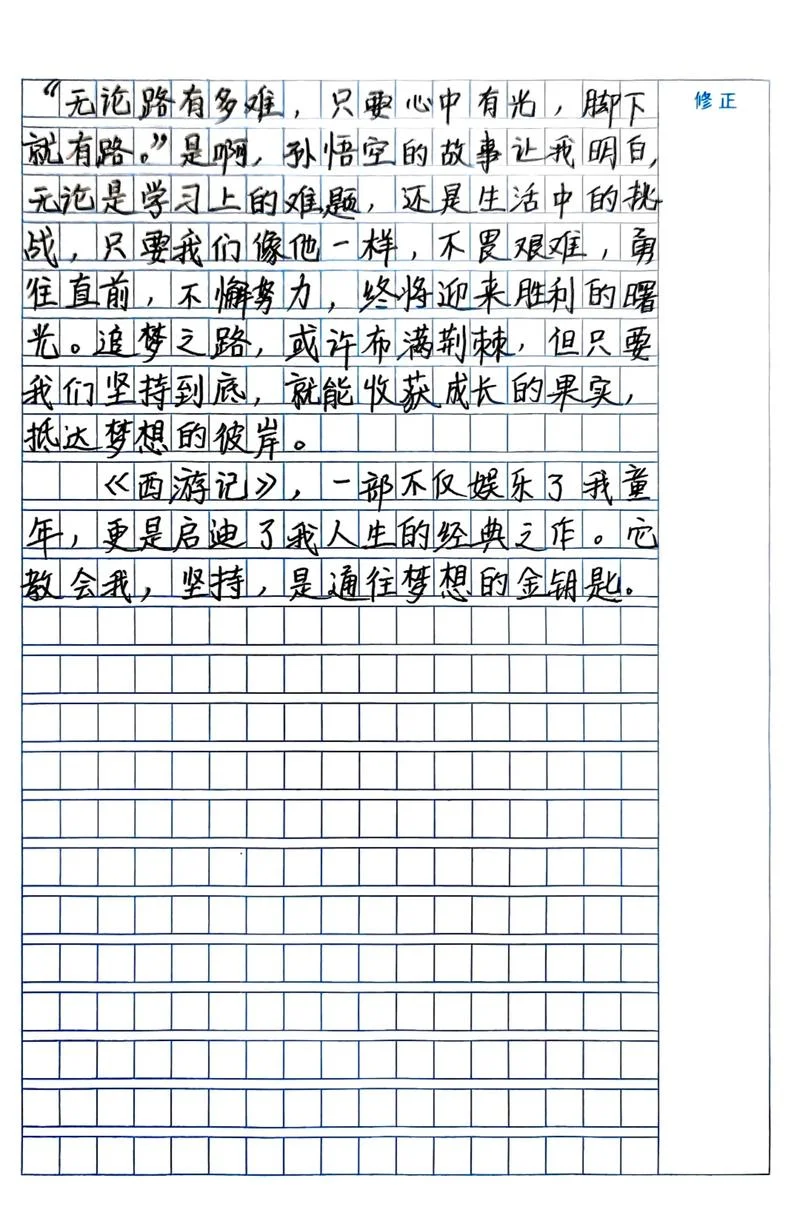 “无论路有多难，只要心中有光，脚下
修正
就有路。”是啊，孙悟空的故事让我明白，
无论是学习上的难题，还是生活中的挑
战，只要我们像他一样，不畏艰难，勇
往直前，不懈努力，终将迎来胜利的曙
光。追梦之路，或许布满荆棘，但只要
我们坚持到底，就能收获成长的果实，
抵达梦想的彼岸。
《西游记》，一部不仅娱乐了我童
年，更是启迪了我人生的经典之作。它
教会我，坚持，是通往梦想的金钥匙.